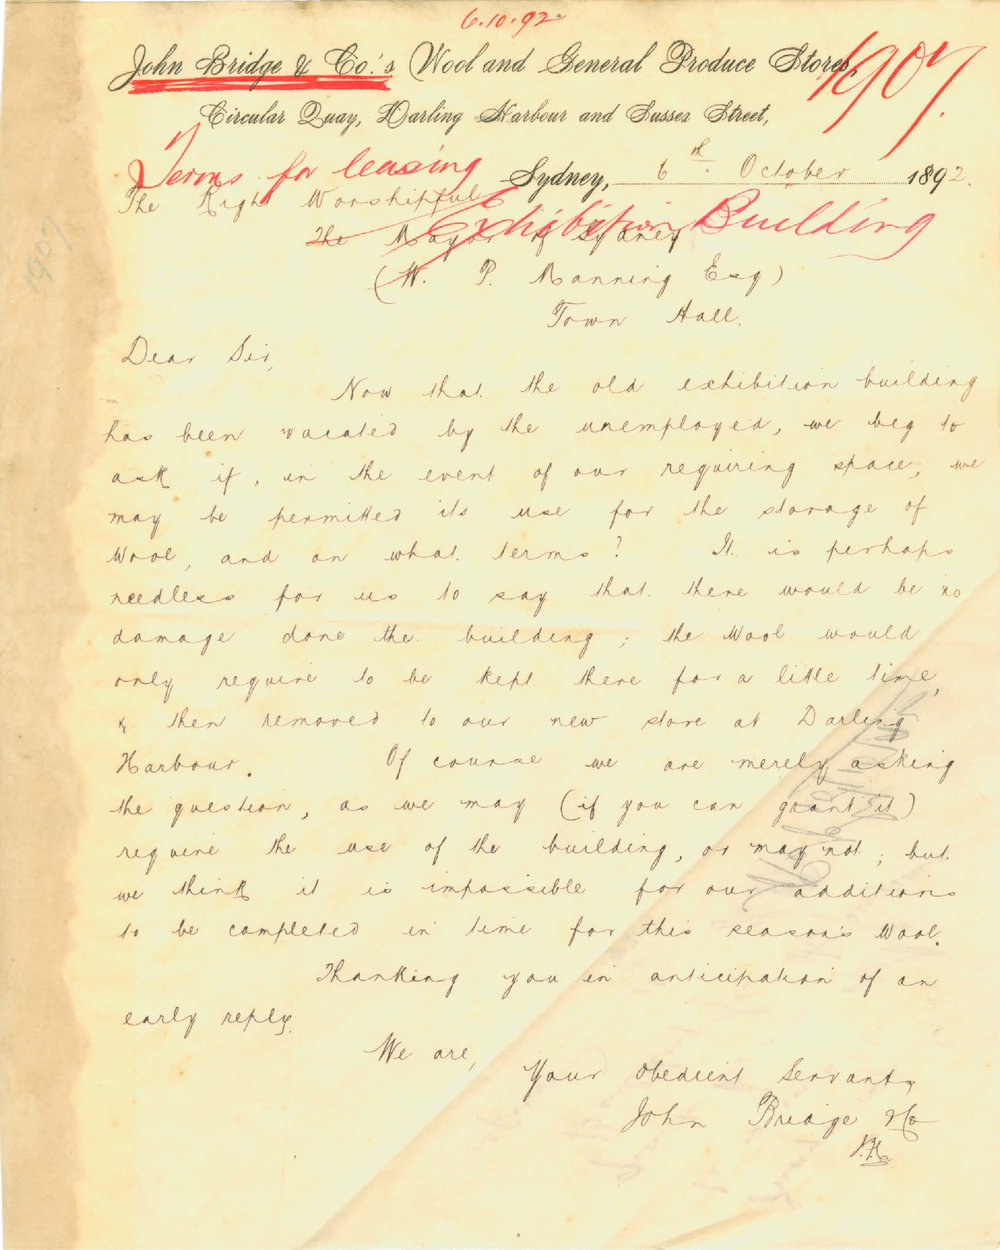 6.10.92
John Bridge & Co.'s Wool and General Produce Stores,
1907.
Circular Quay, Darling Harbour and Sussex Street,
Terms for leasing
Sydney, 6th October 1892.
Exhibition Building
The Right Worshipful
The Mayor of Sydney
(W. P. Manning Esq)
Town Hall.
1907
Dear Sir,
Now that the old exhibition building
has been vacated by the unemployed, we beg to
ask if, in the event of our requiring space, we
may be permitted its use for the storage of
Wool, and on what terms? It is perhaps
needless for us to say that there would be no
damage done the building; the Wool would
only require to be kept there for a little time,
& then removed to our new store at Darling
Harbour. Of course we are merely asking
the question, as we may (if you can grant it)
require the use of the building, or may not; but
we think it is impossible for our additions
to be completed in time for this season's Wool.
Thanking you in anticipation of an
early reply.
We are,
Your obedient Servants
John Bridge & Co